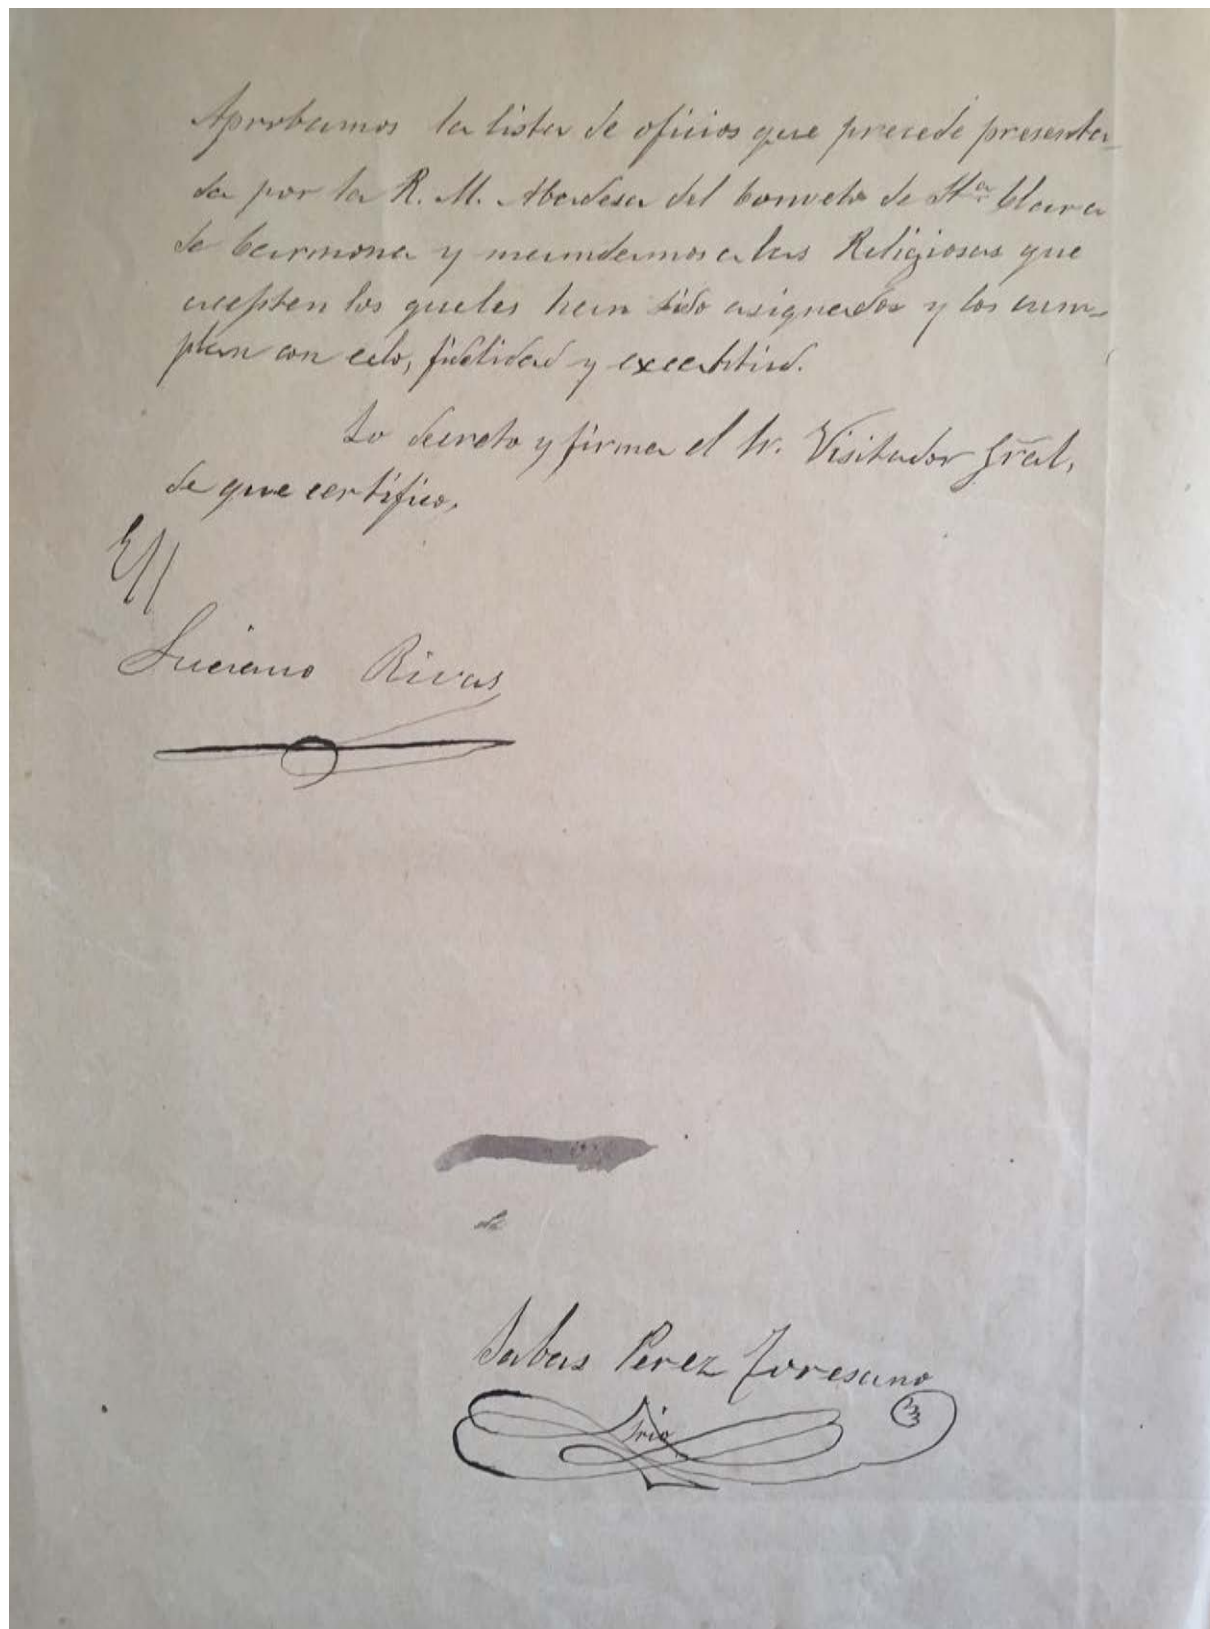 Aprobamos la lista de oficios que precede presenta-
da por la R. M. Abadesa del Conveto de Sta Clara
de Carmona y mandamos a las Religiosas que
acepten los que les han sido asignados y los cum-
plan con celo, fidelidad y exactitud.
Lo decreto y firma el Sr. Visitador Gral,
de que certifico.
Luciano Rivas
de
Sabas Perez Toresano
Srio